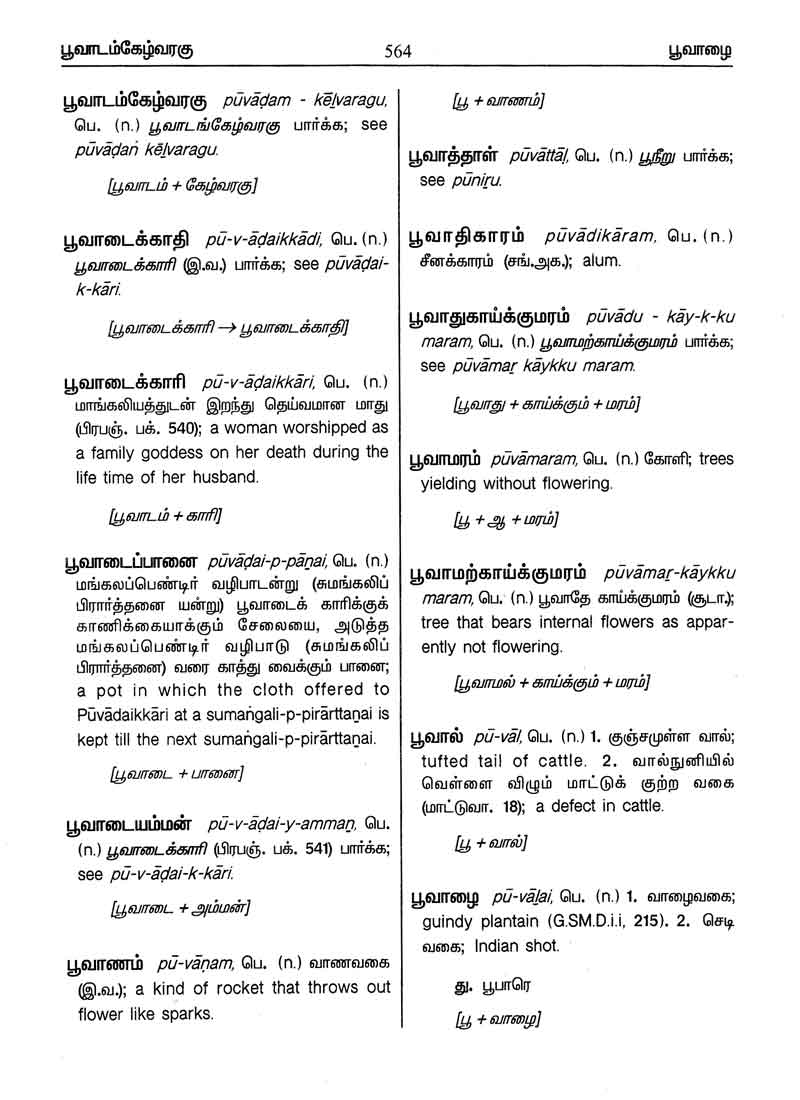 பூவாடம்கேழ்வரகு 564 பூவாழை
பூவாடம்கேழ்வரகு pūvāḍam - kēḻvaragu,
பெ. (n.) பூவாடங்கேழ்வரகு பார்க்க; see
pūvāḍaṅ kēḻvaragu.
[பூவாடம் + கேழ்வரகு]
பூவாடைக்காதி pū-v-āḍaikkādi, பெ. (n.)
பூவாடைக்காரி (இ.வ.) பார்க்க; see pūvāḍai-
k-kāri.
[பூவாடைக்காரி → பூவாடைக்காதி]
பூவாடைக்காரி pū-v-āḍaikkāri, பெ. (n.)
மாங்கலியத்துடன் இறந்து தெய்வமான மாது
(பிரபஞ். பக். 540); a woman worshipped as
a family goddess on her death during the
life time of her husband.
[பூவாடம் + காரி]
பூவாடைப்பானை pūvāḍai-p-pāṉai, பெ. (n.)
மங்கலப்பெண்டிர் வழிபாடன்று (சுமங்கலிப்
பிரார்த்தனை யன்று) பூவாடைக் காரிக்குக்
காணிக்கையாக்கும் சேலையை, அடுத்த
மங்கலப்பெண்டிர் வழிபாடு (சுமங்கலிப்
பிரார்த்தனை) வரை காத்து வைக்கும் பானை;
a pot in which the cloth offered to
Pūvādaikkāri at a sumaṅgali-p-pirārttaṉai is
kept till the next sumaṅgali-p-pirārttaṉai.
[பூவாடை + பானை]
பூவாடையம்மன் pū-v-āḍai-y-ammaṉ, பெ.
(n.) பூவாடைக்காரி (பிரபஞ். பக். 541) பார்க்க;
see pū-v-āḍai-k-kāri.
[பூவாடை + அம்மன்]
பூவாணம் pū-vāṇam, பெ. (n.) வாணவகை
(இ.வ.); a kind of rocket that throws out
flower like sparks.
[பூ + வாணம்]
பூவாத்தாள் pūvāttāḷ, பெ. (n.) பூநீறு பார்க்க;
see pūniṟu.
பூவாதிகாரம் pūvādikāram, பெ. (n.)
சீனக்காரம் (சங்.அக.); alum.
பூவாதுகாய்க்குமரம் pūvādu - kāy-k-ku
maram, பெ. (n.) பூவாமற்காய்க்குமரம் பார்க்க;
see pūvāmaṟ kāykku maram.
[பூவாது + காய்க்கும் + மரம்]
பூவாமரம் pūvāmaram, பெ. (n.) கோளி; trees
yielding without flowering.
[பூ + ஆ + மரம்]
பூவாமற்காய்க்குமரம் pūvāmaṟ-kāykku
maram, பெ. (n.) பூவாதே காய்க்குமரம் (சூடா.);
tree that bears internal flowers as appar-
ently not flowering.
[பூவாமல் + காய்க்கும் + மரம்]
பூவால் pū-vāl, பெ. (n.) 1. குஞ்சமுள்ள வால்;
tufted tail of cattle. 2. வால்நுனியில்
வெள்ளை விழும் மாட்டுக் குற்ற வகை
(மாட்டுவா. 18); a defect in cattle.
[பூ + வால்]
பூவாழை pū-vāḻai, பெ. (n.) 1. வாழைவகை;
guindy plantain (G.SM.D.i.i, 215). 2. செடி
வகை; Indian shot.
து. பூபாரெ
[பூ + வாழை]